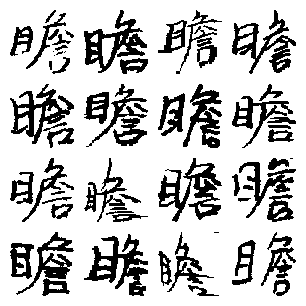 瞻瞻瞻瞻
瞻瞻瞻瞻
瞻瞻瞻瞻
瞻瞻瞻瞻